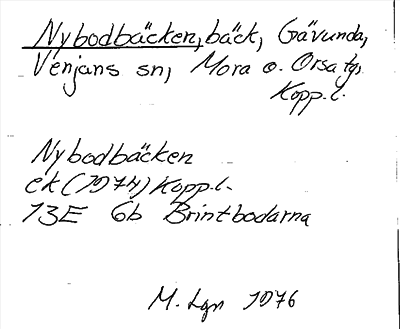 Nybodbäcken, bäck, Gävunda,
Venjans sn, Mora o. Orsa tg,
Kopp. l.
Nybodbäcken
ek (1974) Kopp. l.
13E 6b Brintbodarna
M. Lgn 1976